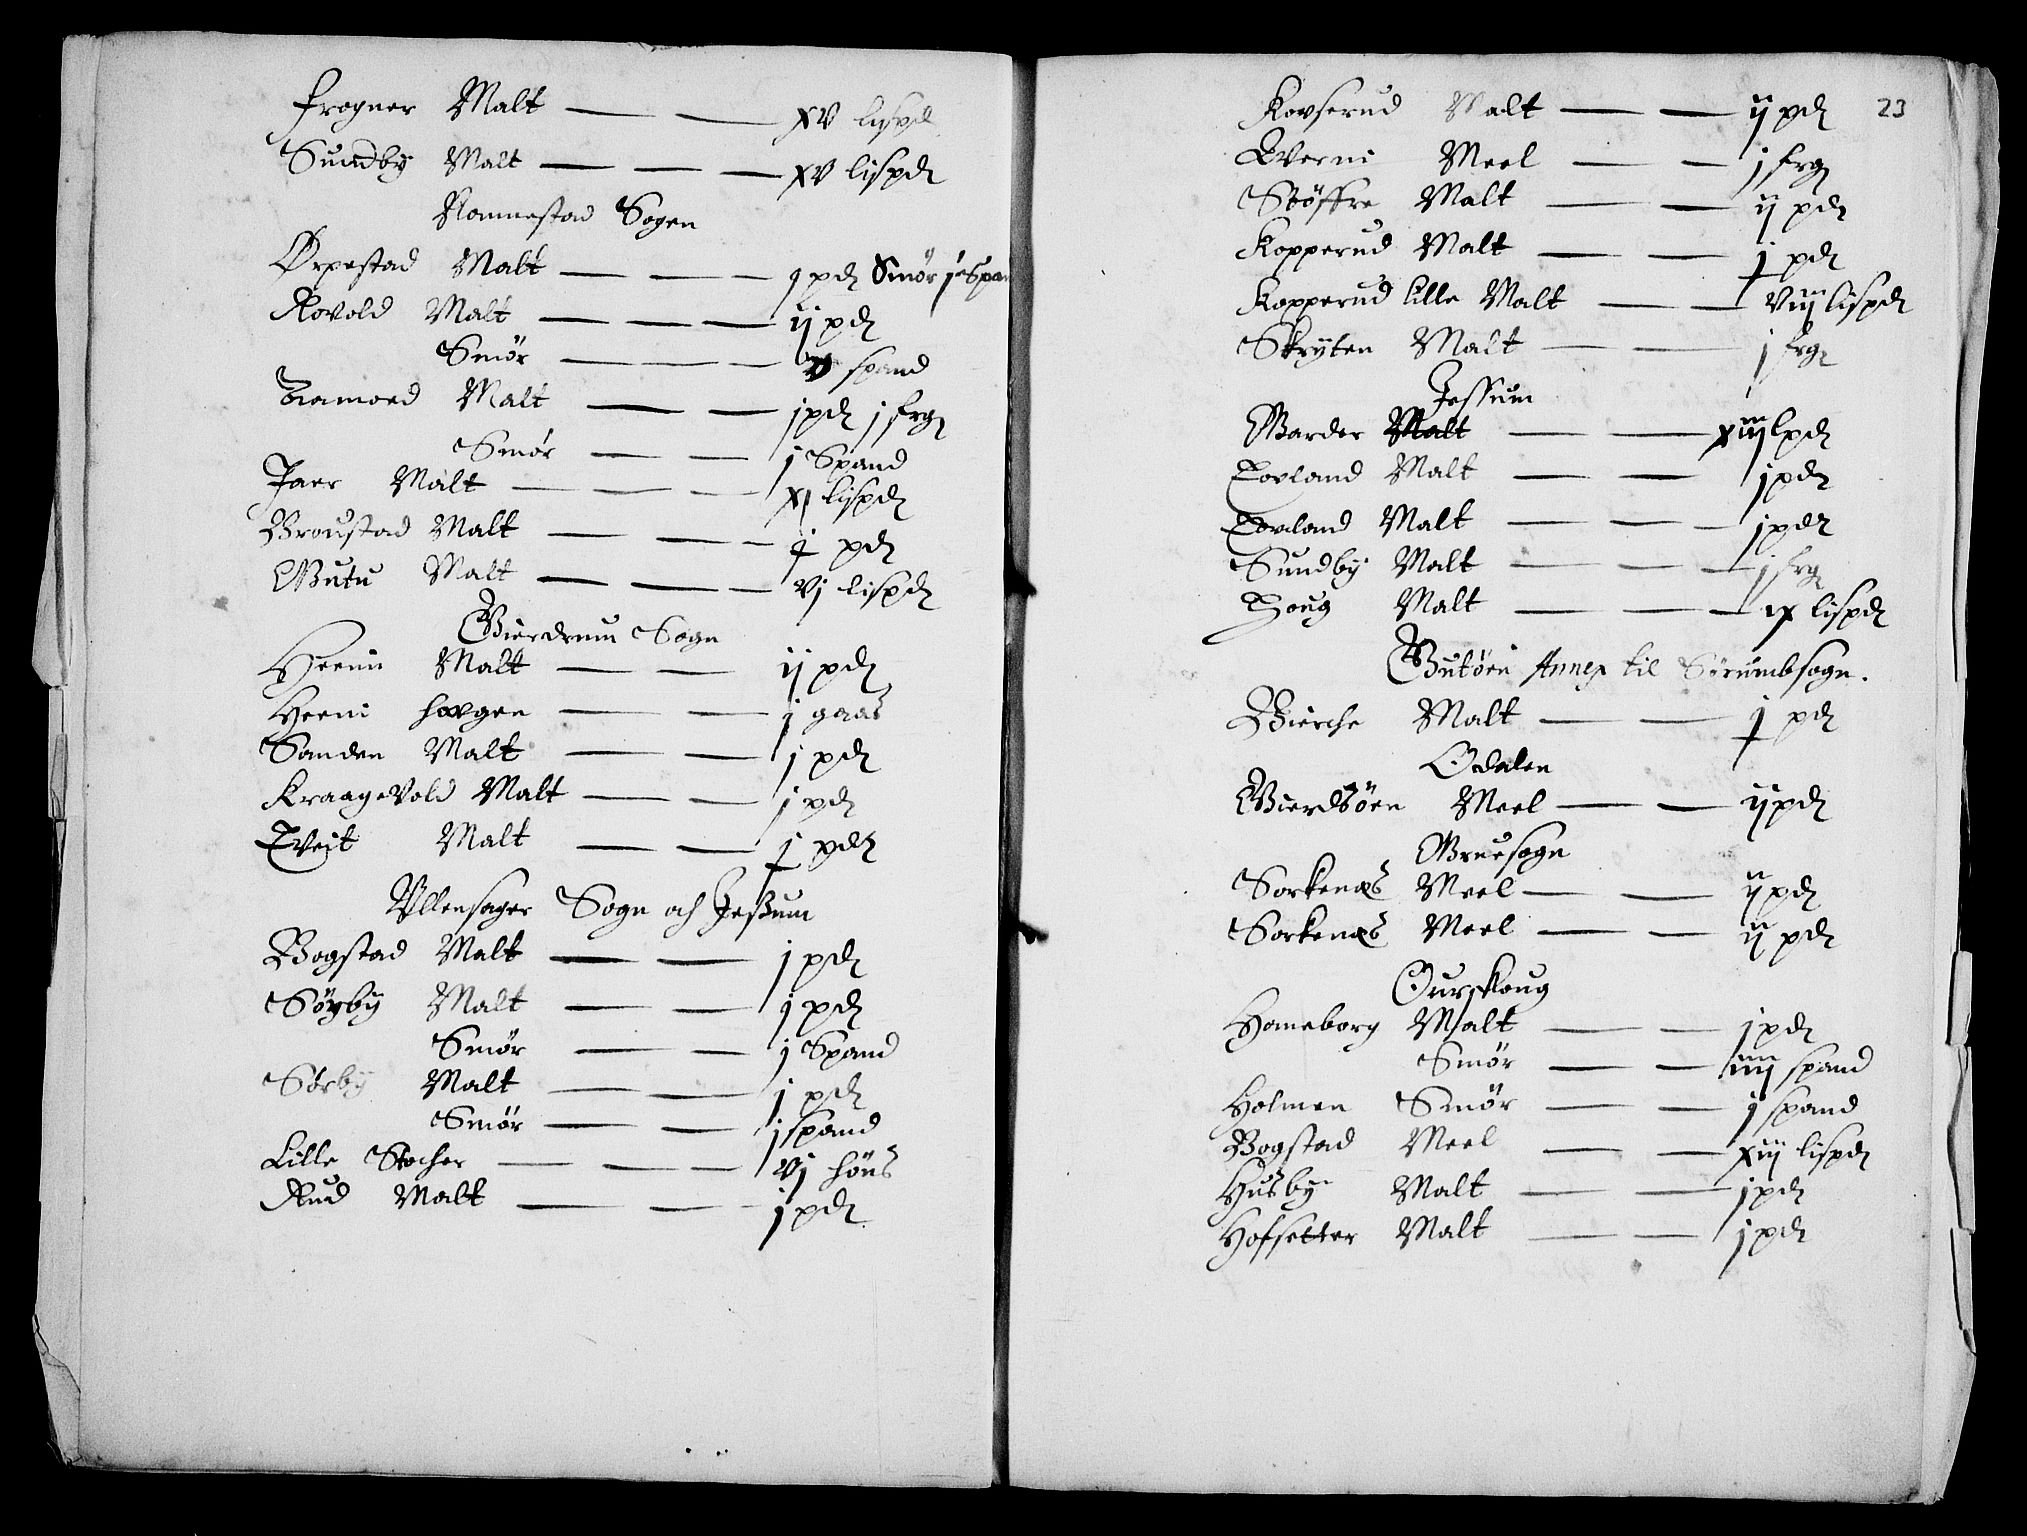 frogner Malt — — xv lispd
Sundby Malt — — — xv lispd
Rommestad Sogen
Ørpestad Malt — — — j pd Smør j Span
Rovold Malt — — — ij pd
Smør — — — spand
Malt — — j pd j frg
Smør — — j Spand
Jaer Malt — — — xj lispd
Broustad Malt — — — j pd
Butu Malt — — — vj lispd
Bierdrum Sogn
Heeni Malt — — ij pd
Heeni howgen — — j gaas
Sanden Malt — — j pd
Kraagevold Malt — — j pd
Tveit Malt — — j pd
Ullensager Sogn och Jeßum
Bogstad Malt — — j pd
Søgby Malt — — j pd
Smør — — j Spand
Sørby Malt — — j pd
Smør — — j spand
Lille Stocher — — — vj höns
Rud Malt — — — j pd
23
Kovserud Malt — — ij pd
Qverni Meel — — j frg
Støffre Malt — — ij pd
Kopperud Malt — — j pd
Kopperud lille Malt — — viij lispd
Skryten Malt — — j frg
Jessum
Garder Malt — — xiij lpd
Lovland Malt — — j pd
Lovland Malt — — — j pd
Sundby Malt — — — j frg
Houg Malt — — — ix lispd
Gutøen Annex til Sørumbsogn.
Bierche Malt — — j pd
Odalen
Gierdsöen Meel — — ij pd
Gruesogn
Sorkenæs Meel — — ij pd
Sorkenæs Meel — — ij pd
Ourskoug
Homeborg Malt — — j pd
Smør — — iiij spand
Holmen Smør — — j spand
Bogstad Meel — — xiij lispd
Husby Malt — — j pd
Hofsetter Malt — — j pd